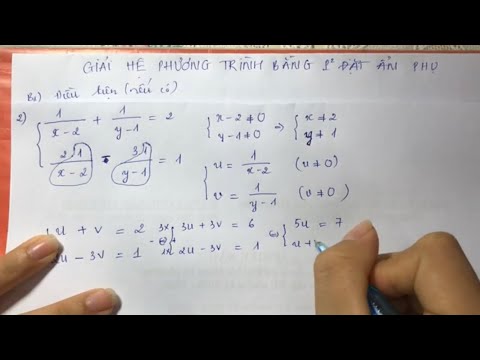 GIẢI HỆ PHƯƠNG TRÌNH BẰNG P² ĐẶT ẨN PHỤ
B₁) Điều kiện (nếu có)
2) { 1/(x-2) + 1/(y-1) = 2 { x-2 ≠ 0 => { x ≠ 2
2.1/(x-2) - 3.1/(y-1) = 1 y-1 ≠ 0 y ≠ 1
{ u = 1/(x-2) (u ≠ 0)
v = 1/(y-1) (v ≠ 0)
u + v = 2 3x 3u + 3v = 6 (=) { 5u = 7
u - 3v = 1 1x 2u - 3v = 1 u +